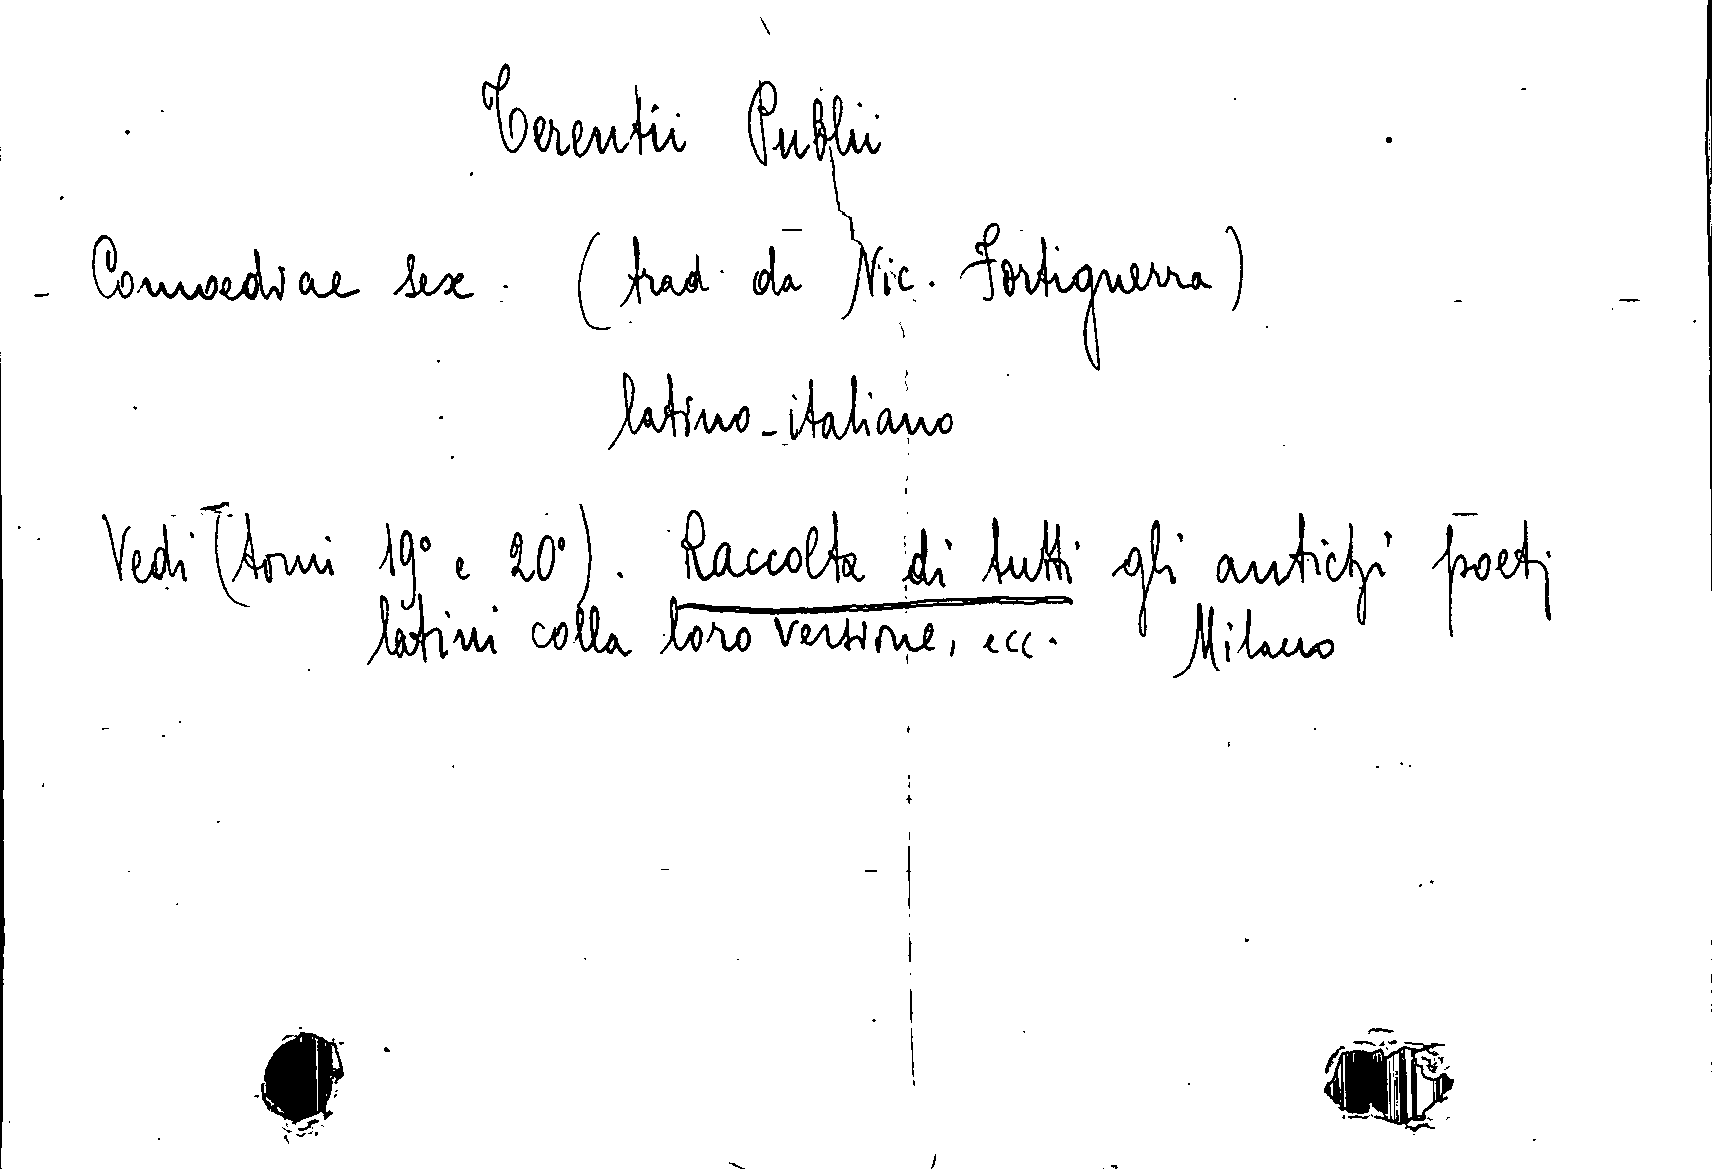 Terentii Publii
Comoediae sex. (trad. da Nic. Fortiguerra)
latino-italiano
Vedi (tomi 19° e 20°). Raccolta di tutti gli antichi poeti
latini colla loro versione, ecc. Milano